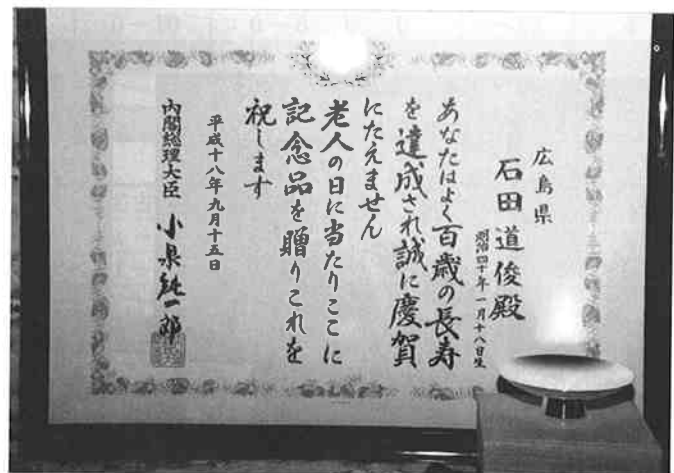 広島県
石田道俊殿
明治四十年一月十八日生
あなたはよく百歳の長寿
を達成され誠に慶賀
にたえません
老人の日に当たりここに
記念品を贈りこれを
祝します
平成十八年九月十五日
内閣総理大臣 小泉純一郎